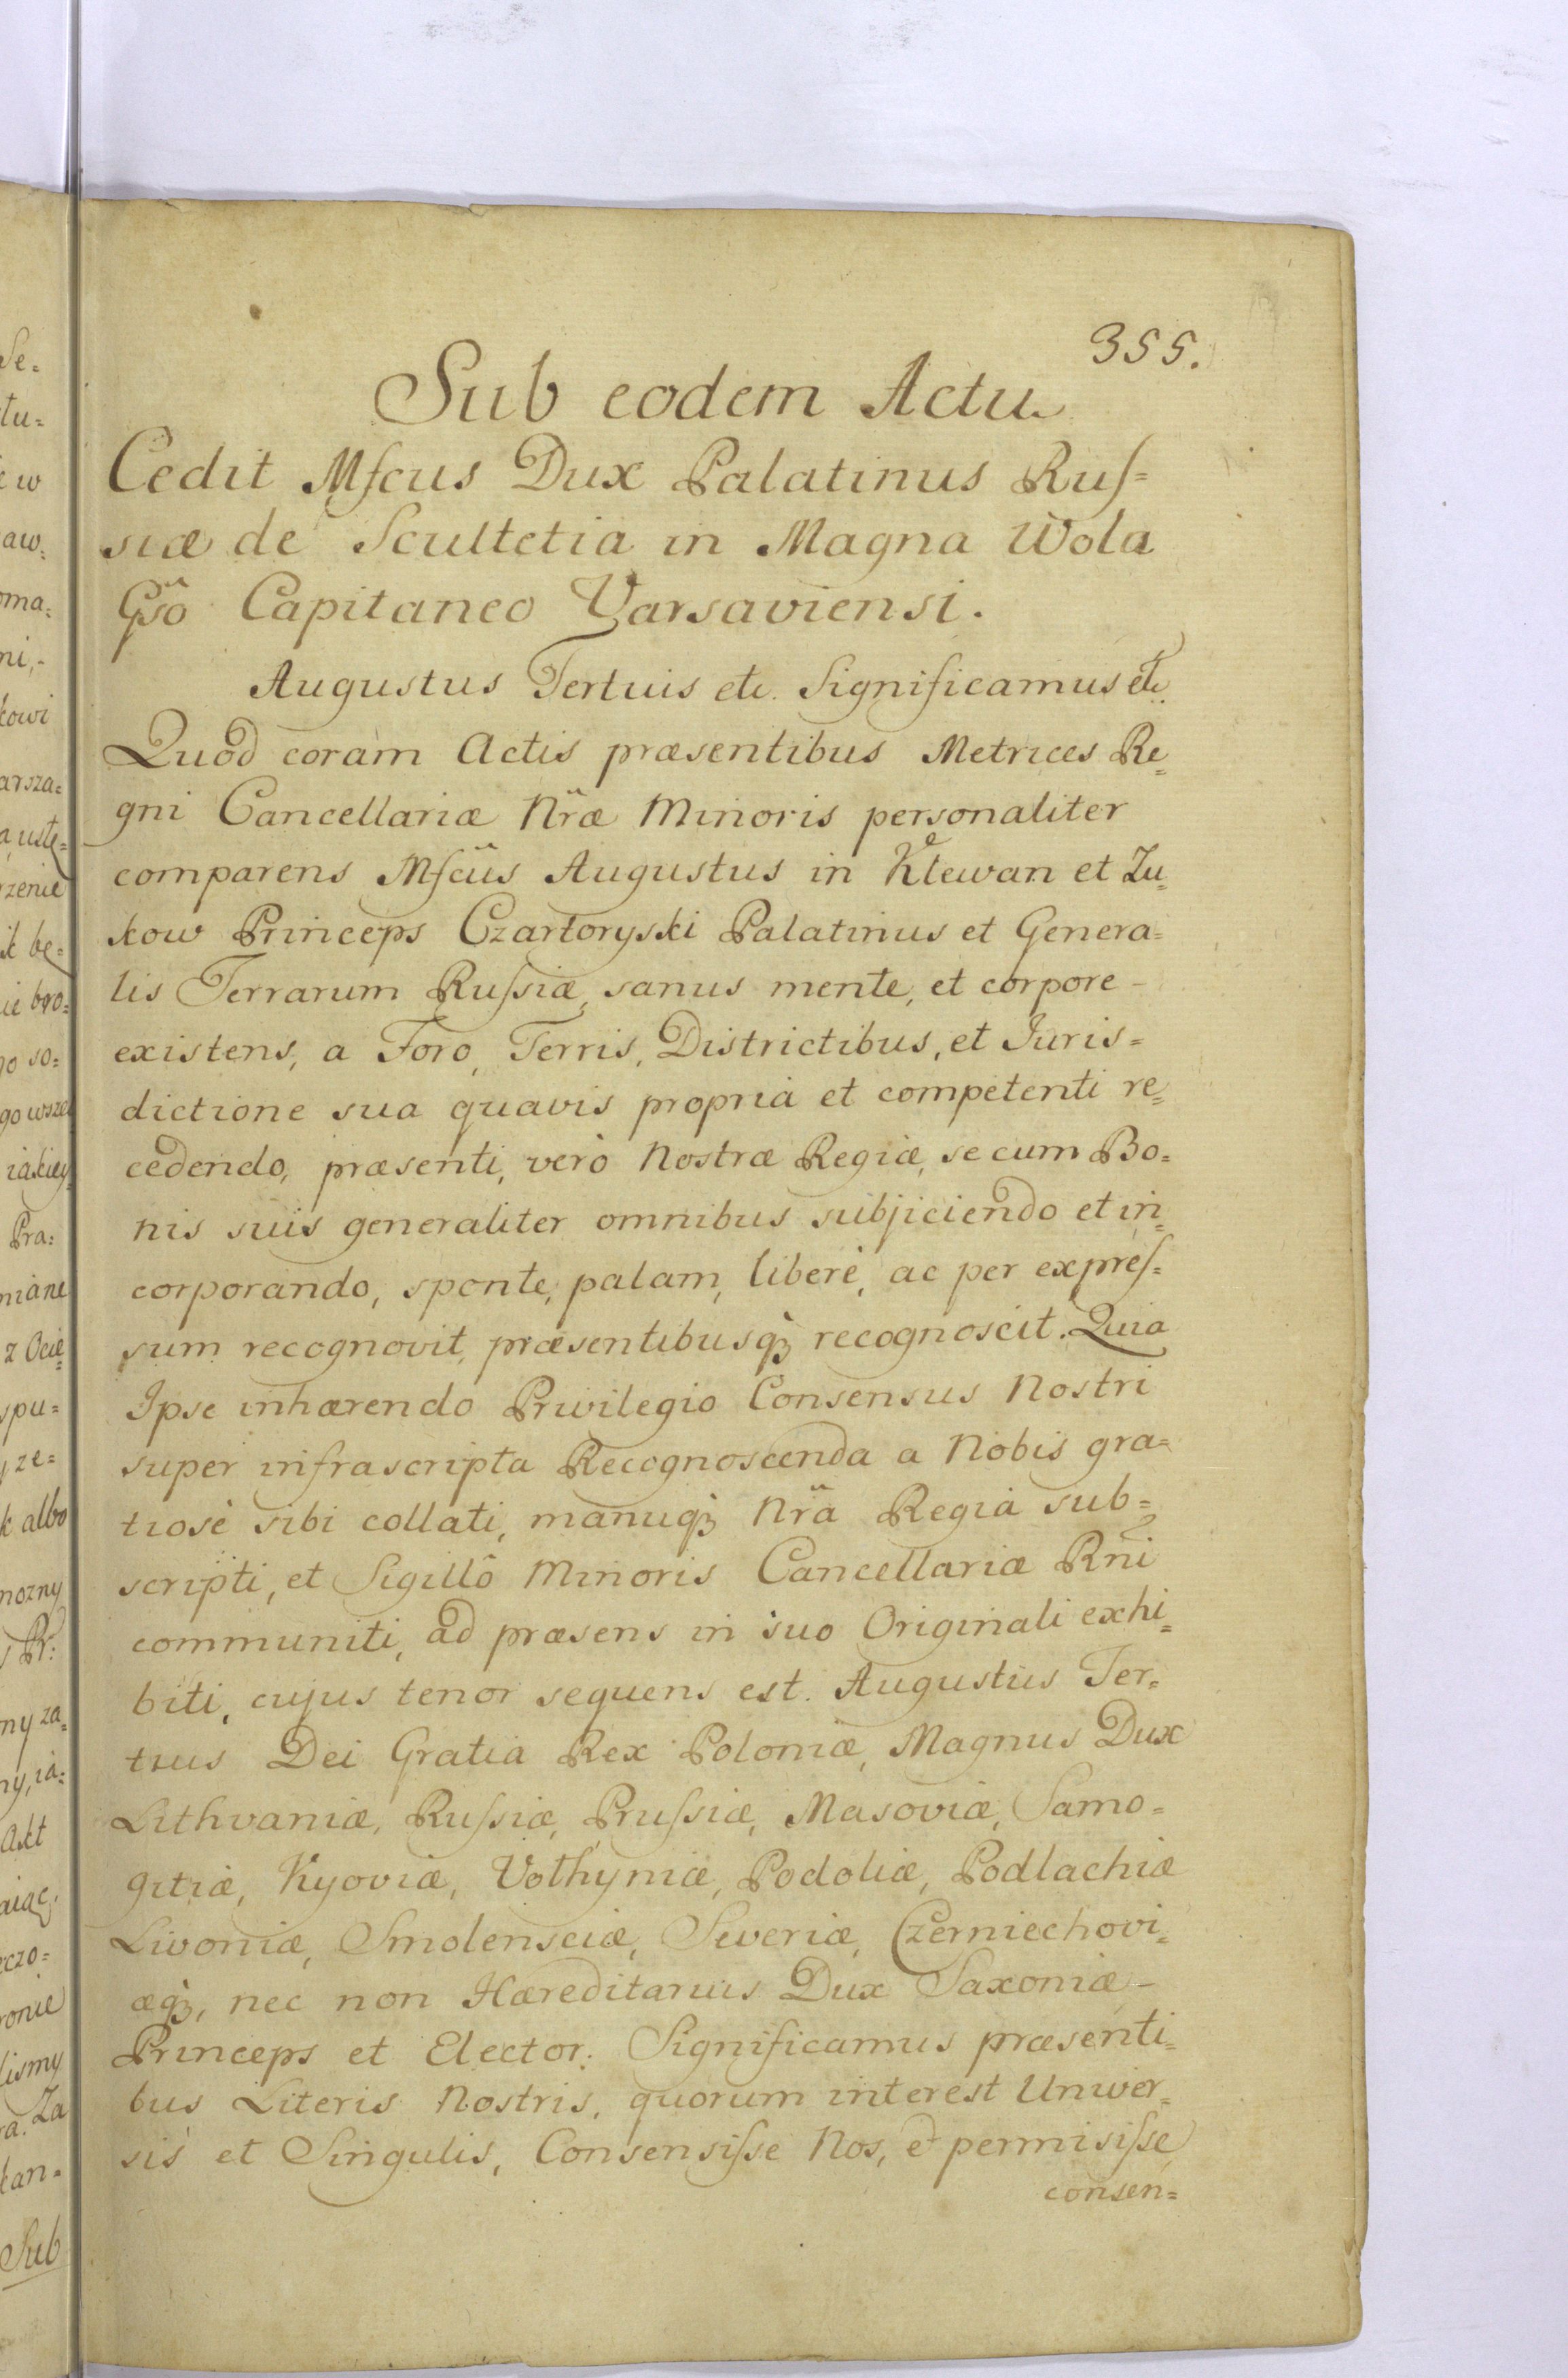 355.
Sub eodem Actu
Cedit Mfcus Dux Palatinus Rus=
siæ de Scultetia in Magna Wola
Gso Capitaneo Varsaviensi.
Augustus Tertuis etc. Significamus etc.
Quod coram Actis præsentibus Metrices Re=
gni Cancellariæ Nræ Minoris personaliter
comparens Mfcus Augustus in Klewan et Zu=
kow Princeps Czartoryski Palatinus et Genera=
lis Terrarum Russiæ, sanus mente, et corpore -
existens, a Foro, Terris, Districtibus, et Iuris=
dictione sua quavis propria et competenti re=
cedendo, præsenti, verò Nostræ Regiæ, se cum Bo=
nis suis generaliter omnibus subjiciendo et in=
corporando, sponte, palam, liberè, ac per expres=
sum recognovit, præsentibusq; recognoscit. Quia
Ipse inhærendo Privilegio Consensus Nostri
super infrascripta Recognoscenda a Nobis gra=
tiosè sibi collati, manuq; Nra Regia sub=
scripti, et Sigillô Minoris Cancellariæ Rni
communiti, ad præsens in suo Originali exhi=
biti, cujus tenor sequens est. Augustus Ter=
tius Dei Gratia Rex Poloniæ, Magnus Dux
Lithvaniæ, Russiæ, Prussiæ, Masoviæ, Samo=
gitiæ, Kyoviæ, Volhyniæ, Podoliæ, Podlachiæ
Livoniæ, Smolensciæ, Severiæ, Czerniechovi=
æq;, nec non Hæreditarius Dux Saxoniæ -
Princeps et Elector. Significamus præsenti=
bus Literis Nostris, quorum interest Univer=
sis et Singulis, Consensisse Nos, et permisisse
consen=
Se=
tu=
w
aw=
oma=
ni,-
kowi
arsza=
a uste=
zenie
ik be=
ie bro=
go so=
go wsze
iakiey
Pra:
niane
z Ocie=
spu=
y ze=
k albo
nozny
s R:
ny za=
ny, ia=
Akt
aiąc,
eczo=
ronie
lismy
ra. Za
kan=
Sub